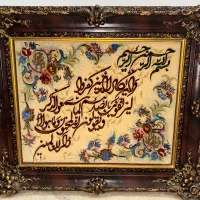 بسم الله الرحمن الرحيم
وان يكاد الذين كفروا
ليزلقونك بابصارهم لما سمعوا الذكر
ويقولون انه لمجنون وما هو
الا ذكر للعالمين